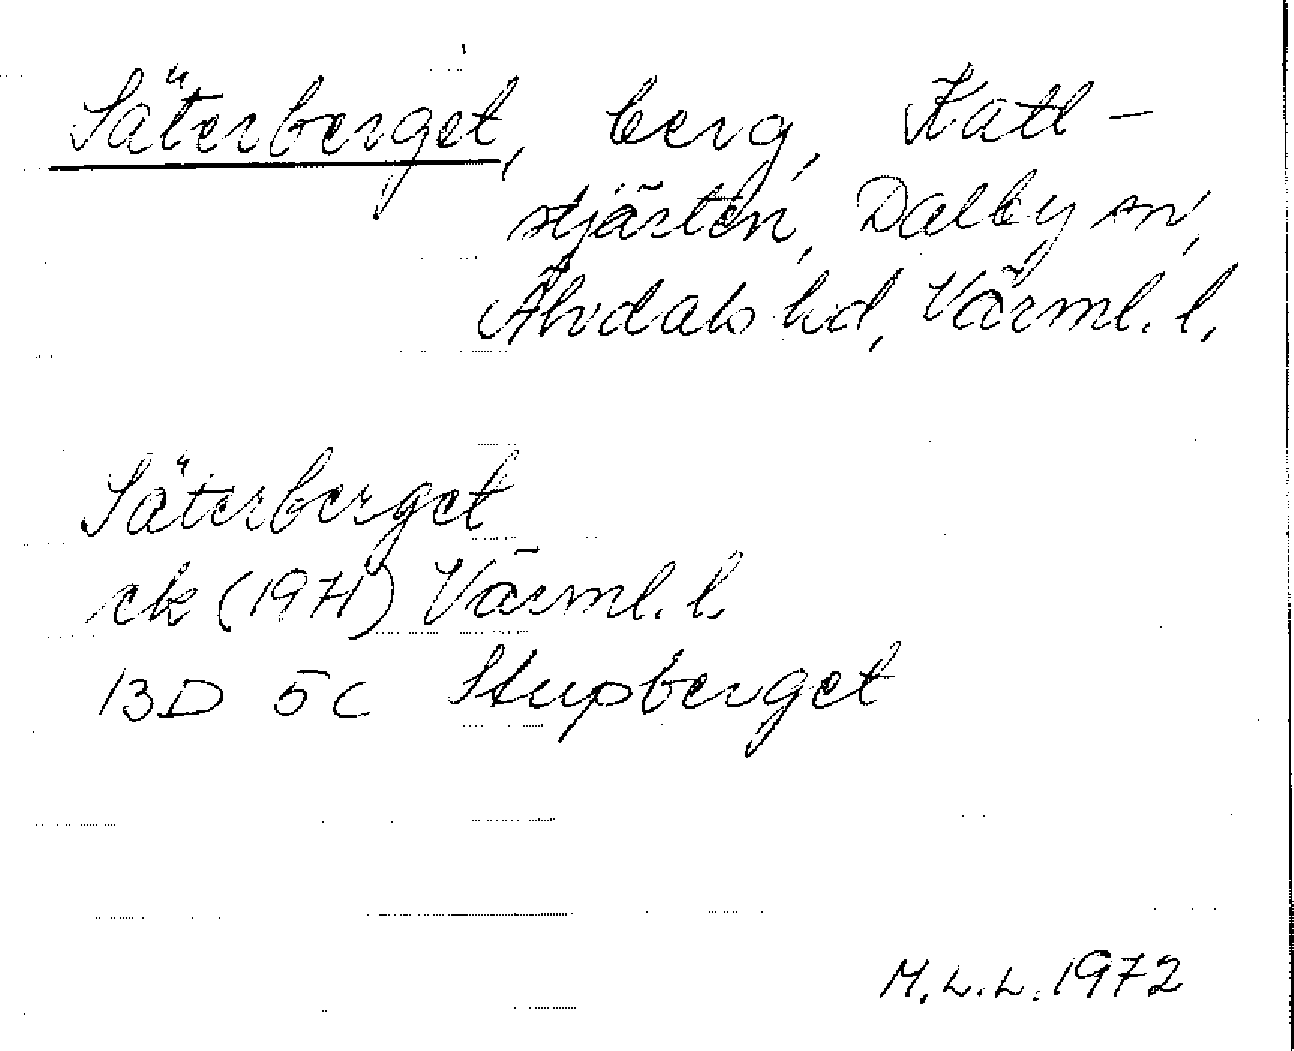 Säterberget, berg, Katt-
stjärten, Dalby sn,
Älvdals hd, Värml. l.
Säterberget
ek (1971) Värml. l.
13D 5c Stupberget
M.L.L. 1972